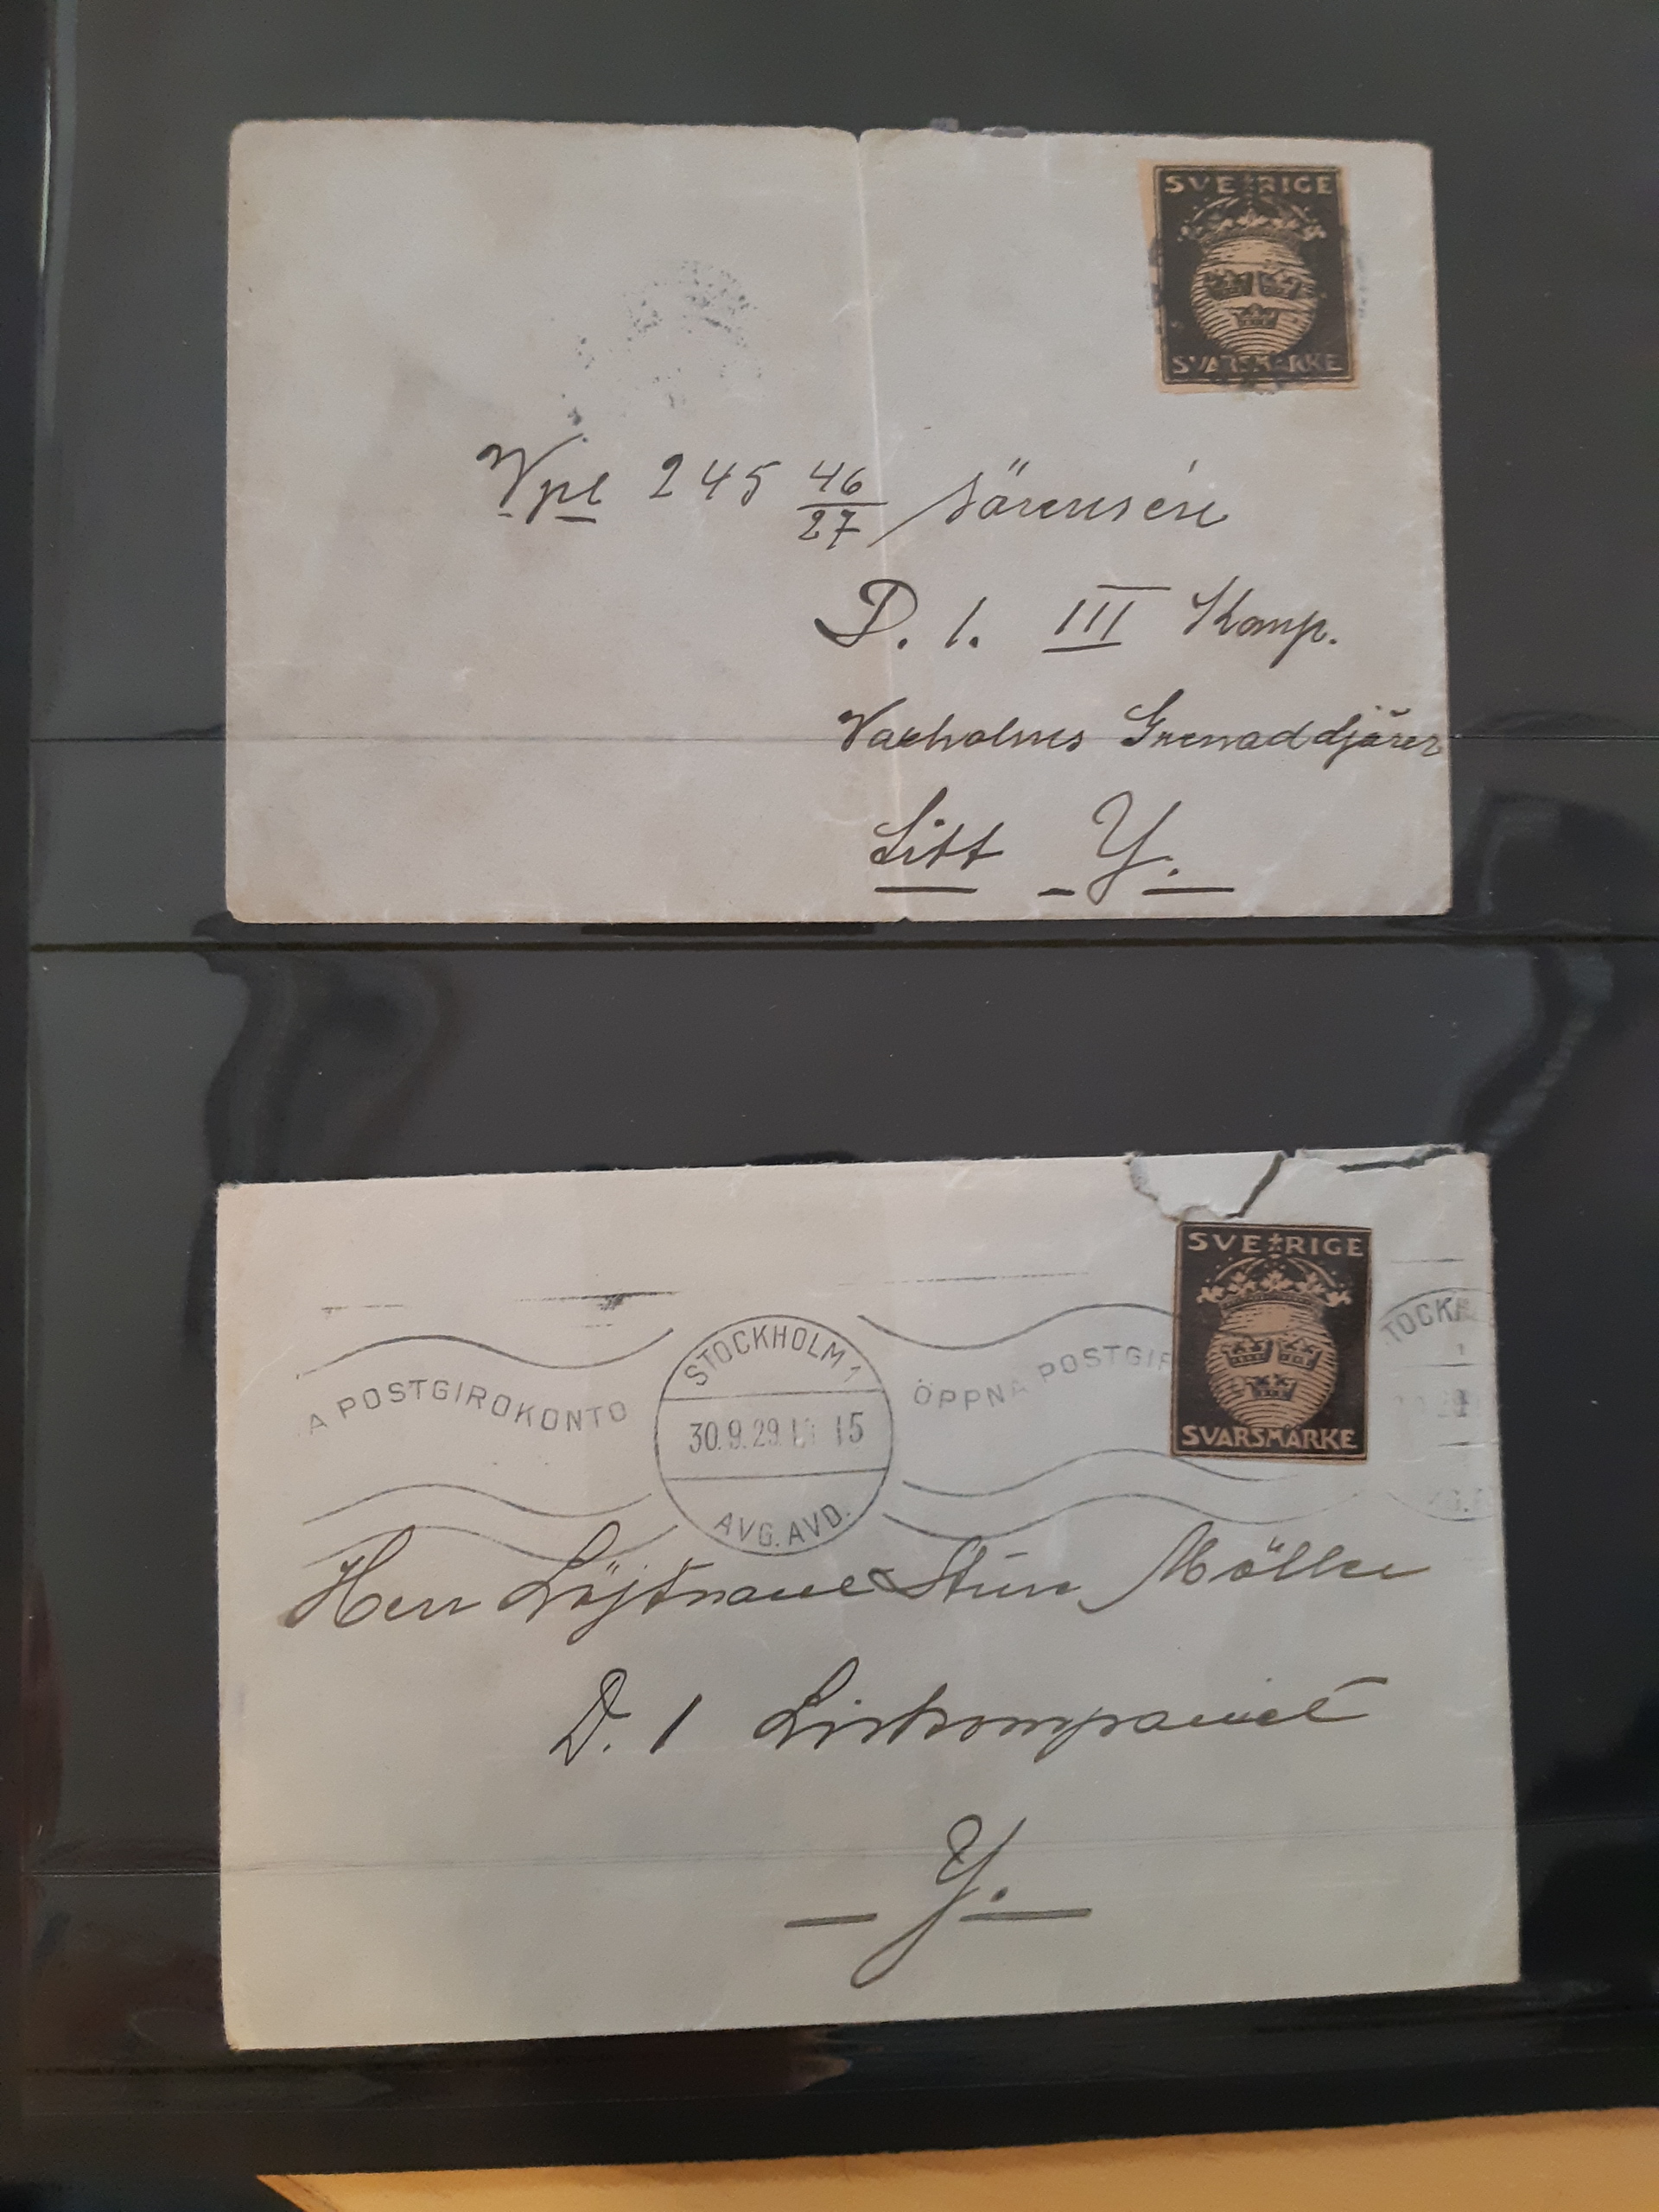 SVERIGE
SVARSMÄRKE
Vpl 245 46/27 Sörensén
D. 1. III Komp.
Vaxholms Grenaddjärer
Litt Y.
SVERIGE
SVARSMÄRKE
A POSTGIROKONTO
STOCKHOLM 1
30.9.29 15
AVG. AVD.
ÖPPNA POSTGIR
TOCKH
Herr Löjtnant Sture Mölle
D. 1 Livkompaniet
Y.